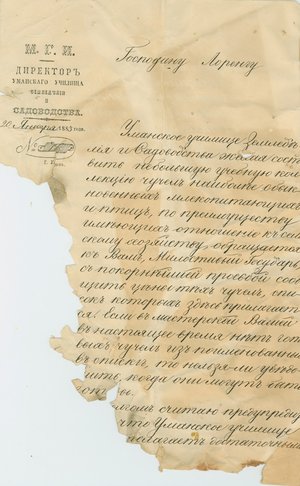 М. Г. И.
ДИРЕКТОРЪ
УМАНСКАГО УЧИЛИЩА
ЗЕМЛЕДѢЛІЯ
И
САДОВОДСТВА.
20 Января 1883 года.
№
Г. Умань.
Господину Лоренцу
Уманское училище Земледѣ
лія и Садоводства желая сост
вить небольшую учебную кол
лекцію чучелъ наиболѣе обык
новенныхъ млекопитающихъ
и птицъ, по преимуществу
имѣющихъ отношеніе къ сель
скому хозяйству, обращается
къ Вамъ, Милостивый Государь
съ покорнѣйшей просьбой сооб
щить цѣны тѣхъ чучелъ, спи
сокъ которыхъ здѣсь прилагает
ся. Если въ мастерской Вашей
въ настоящее время нѣтъ гото
выхъ чучелъ изъ поименованны
въ спискѣ, то нельзя-ли увѣдо
мить, когда они могутъ быть
считаю предупреди
что Уманское училище
полагаетъ достаточными